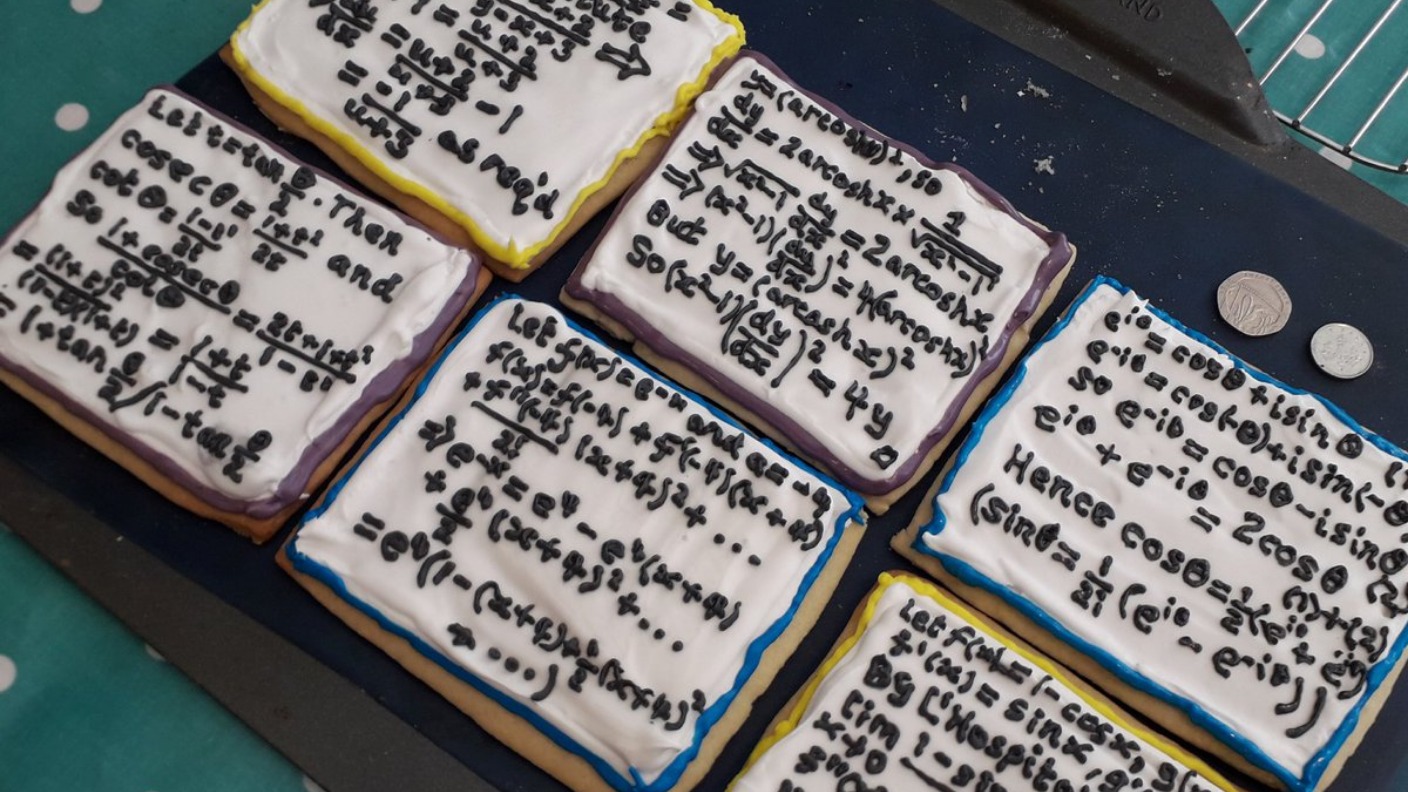 = u+v
- 1
as req'd
Let t=tan θ/2. Then
cosec θ = 1+t²/2t and
cot θ = 1-t²/2t
So 1+cosecθ/cotθ = 2t+1+t²/1-t²
= (1+t)²/(1-t)(1+t) = 1+t/1-t
= 1+tan θ/2 / (1-tan θ/2
y=(arcoshx)², so
dy/dx = 2arcoshx × 1/√x²-1
⇒ √x²-1 dy/dx = 2arcoshx
⇒ (x²-1)(dy/dx)² = 4(arcoshx)²
But y=(arcoshx)²
So (x²-1)(dy/dx)² = 4y
Let f(x)=e⁻ˣ and a=-4
f(x)=f(-4)+f'(-4)(x+4)
+ f''(-4)/2! (x+4)² + ...
⇒ e⁻ˣ = e⁴ - e⁴(x+4)
+ e⁴/2! (x+4)² + ...
= e⁴(1-(x+4)+½(x+4)²
+ ...)
e^iθ = cosθ + isinθ (1)
e^-iθ = cos(-θ)+isin(-θ)
So e^-iθ = cosθ-isinθ (2)
e^iθ + e^-iθ = 2cosθ (1)+(2)
Hence cosθ=½(e^iθ + e^-iθ)
(sinθ= 1/2i (e^iθ - e^-iθ))
Let f(x)=1-cosx, g(
f'(x) = sinx, g'
By L'Hospital's
lim x→0 1-